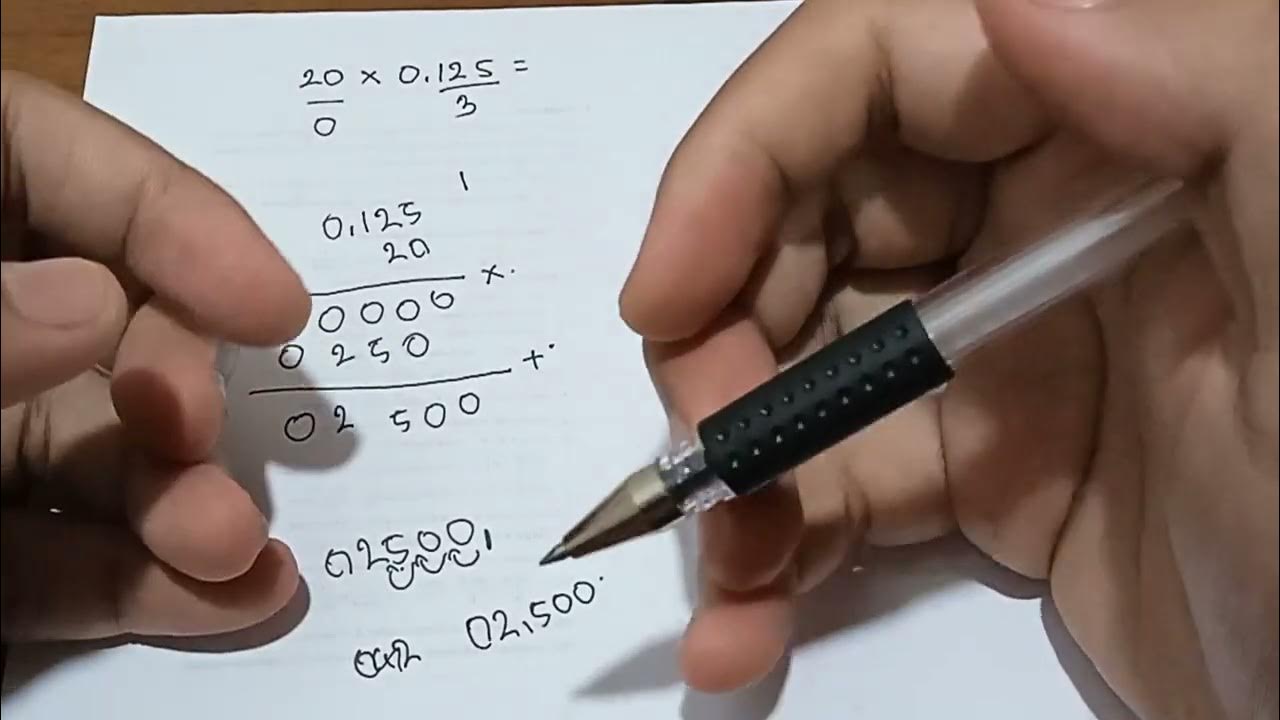 20 × 0.125 =
0 3
1
0,125
20
×.
0000
0250
+.
02 500
02500,
02,500.